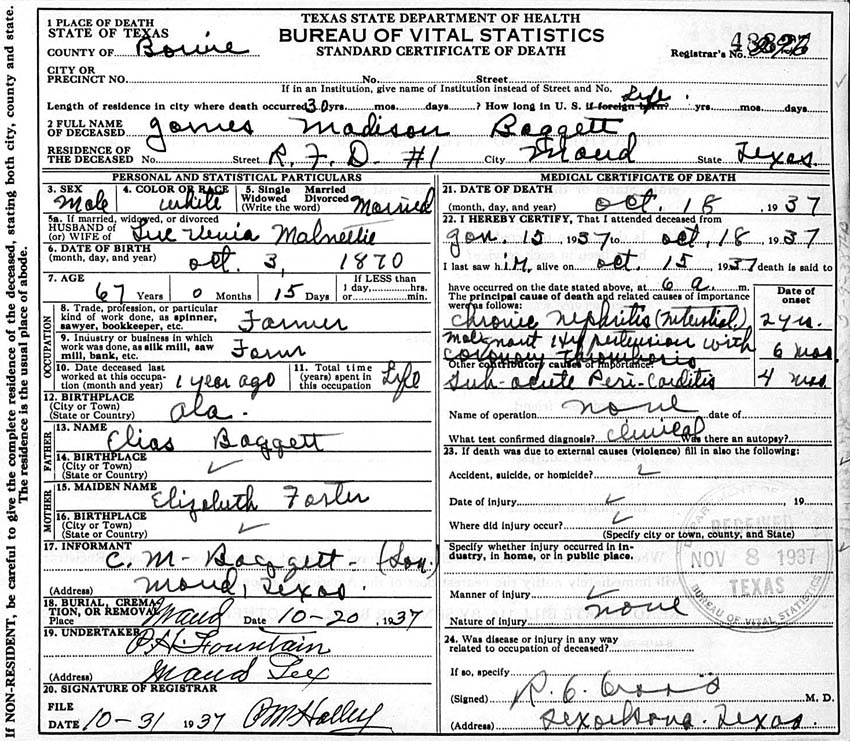 TEXAS STATE DEPARTMENT OF HEALTH
BUREAU OF VITAL STATISTICS
STANDARD CERTIFICATE OF DEATH
1 PLACE OF DEATH
STATE OF TEXAS
COUNTY OF Bowie
Registrar's No.
CITY OR
PRECINCT NO. No. Street
If in an Institution, give name of Institution instead of Street and No.
Length of residence in city where death occurred 30 yrs. mos. days ? How long in U. S. if foreign born? Life yrs. mos. days.
2 FULL NAME
OF DECEASED James Madison Baggett
RESIDENCE OF
THE DECEASED No. Street R. F. D. #1 City Maud State Texas.
PERSONAL AND STATISTICAL PARTICULARS
3. SEX Male 4. COLOR OR RACE white 5. Single Married Widowed Divorced (Write the word) Married
5a. If married, widowed, or divorced
HUSBAND of
(or) WIFE of
6. DATE OF BIRTH
(month, day, and year) Oct. 3, 1870
7. AGE 67 Years 0 Months 15 Days If LESS than 1 day, hrs. or min.
OCCUPATION
8. Trade, profession, or particular
kind of work done, as spinner,
sawyer, bookkeeper, etc. Farmer
9. Industry or business in which
work was done, as silk mill, saw
mill, bank, etc. Farm
10. Date deceased last
worked at this occupa-
tion (month and year) 1 year ago
11. Total time
(years) spent in
this occupation Life
12. BIRTHPLACE
(City or Town)
(State or Country) Ala.
FATHER
13. NAME Elias Baggett
14. BIRTHPLACE
(City or Town)
(State or Country) ✓
MOTHER
15. MAIDEN NAME Elizabeth Foster
16. BIRTHPLACE
(City or Town)
(State or Country) ✓
17. INFORMANT C. M. Baggett - (Son)
(Address) Maud, Texas.
18. BURIAL, CREMA-
TION, OR REMOVAL
Place Maud Date 10-20 1937
19. UNDERTAKER P. H. Fountain
(Address) Maud Tex
20. SIGNATURE OF REGISTRAR
FILE
DATE 10-31 1937
MEDICAL CERTIFICATE OF DEATH
21. DATE OF DEATH
(month, day, and year) Oct. 18 1937
22. I HEREBY CERTIFY, That I attended deceased from
Jan. 15 1937 to Oct, 18 1937
I last saw him alive on Oct. 15 1937 death is said to
have occurred on the date stated above, at 6 a. m.
The principal cause of death and related causes of importance
were as follows:
Date of
onset
Chronic Nephritis (Intestial) 2 yrs.
Malignant Hypertension with
Coronary Thrombosis 6 Mos.
Other contributory causes of importance:
Sub-acute Peri-Carditis 4 Mos
Name of operation none date of
What test confirmed diagnosis? Clinical Was there an autopsy?
23. If death was due to external causes (violence) fill in also the following:
Accident, suicide, or homicide? ✓
Date of injury ✓ 19
Where did injury occur? ✓
(Specify city or town, county, and State)
Specify whether injury occurred in in-
dustry, in home, or in public place.
Manner of injury ✓
Nature of injury none
24. Was disease or injury in any way
related to occupation of deceased?
If so, specify
(Signed) M. D.
(Address) Texarkana. Texas.
RECEIVED
NOV 8 1937
TEXAS
BUREAU OF VITAL STATISTICS
If NON-RESIDENT, be careful to give the complete residence of the deceased, stating both city, county and state.
The residence is the usual place of abode.